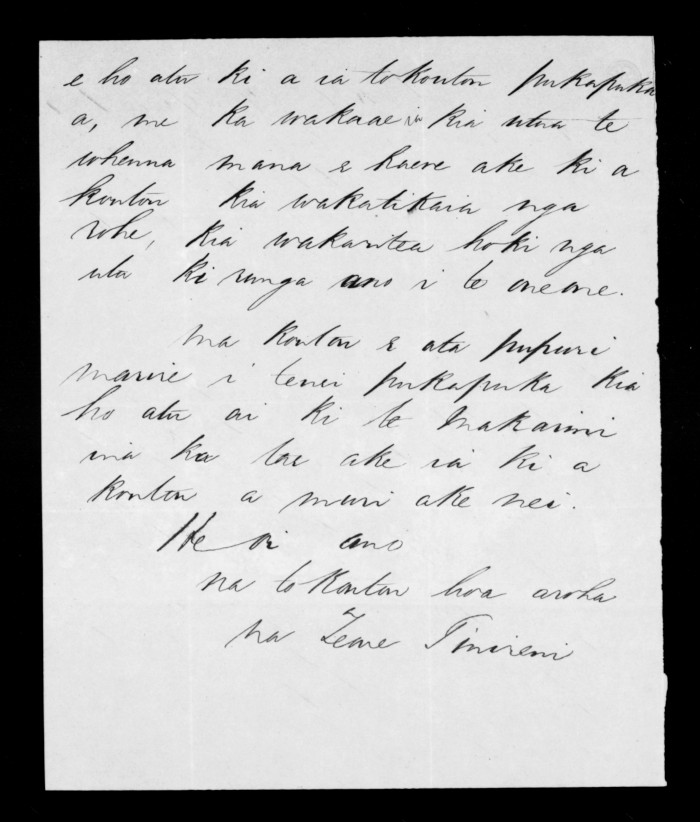 e ho atu ki a ia to koutou pukapuka
a, me ka wakaae ia kia utua te
whenua mana e haere ake ki a
koutou kia wakatikaia nga
rohe, kia wakaritea hoki nga
utu ki runga ano i te oneone.
ma koutou e ata pupuri
marire i tenei pukapuka kia
ho atu ai ki te Makarini
ina ka tae ake ia ki a
koutou a muri ake nei.
He oi ano
na to Koutou hoa aroha
na